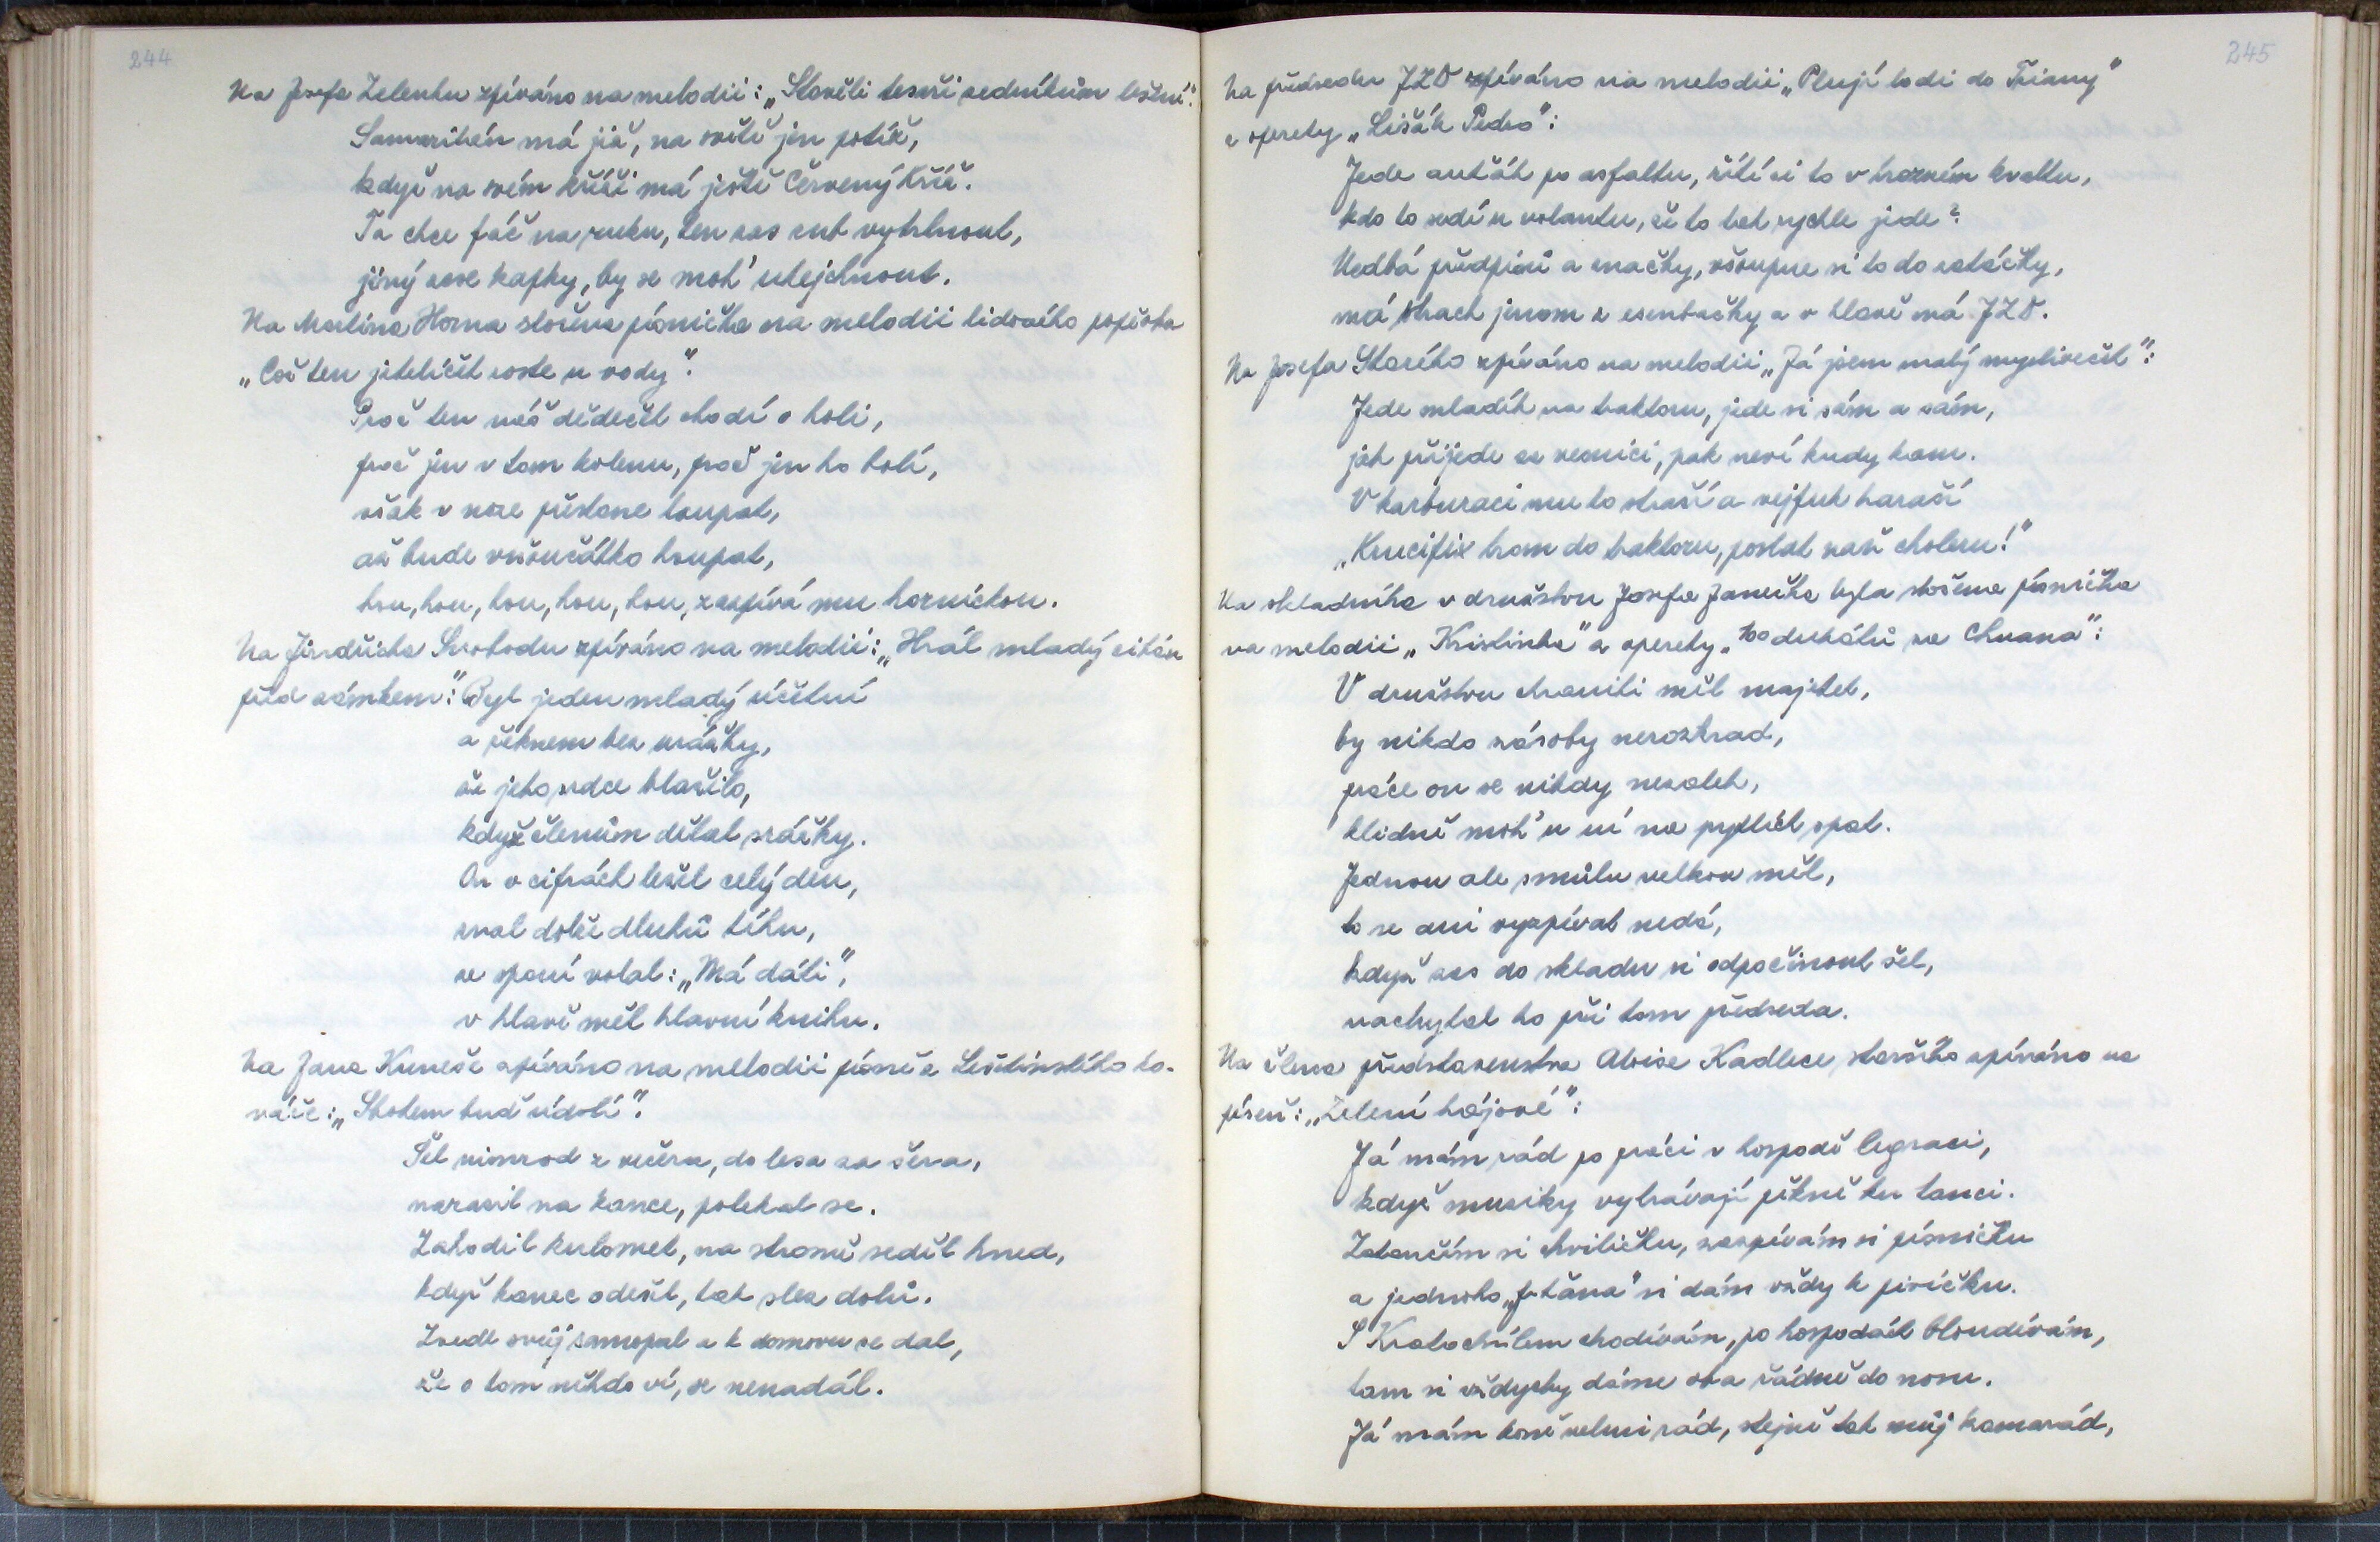 244
Na Josefa Zelenku zpíváno na melodii: „Stavěli tesaři zedníkům lešení":
Samaritán má již, na světě jen potíž,
když na svém kříži má ještě Červený Kříž.
Ta chce fáč na ruku, ten zas zub vytrhnout,
jiný zase kapky, by se moh' utejchnout.
Na Martina Horna složena písnička na melodii lidového popěvku
„Což ten jetelíček roste u vody".
Proč ten náš dědeček chodí o holi,
proč jen v tom kolenu, proč jen ho bolí,
však v noze přestane loupat,
až bude vnoučátko houpat,
hou, hou, hou, hou, hou, zazpívá mu hornickou.
Na Jindřicha Svobodu zpíváno na melodii: „Hrál mladý cikán
před zámkem": Byl jeden mladý účetní
a řeknem bez urážky,
že jeho srdce blažilo,
když členům dělal srážky.
On v cifrách ležel celý den,
znal dobře dluhů tíhu,
ze spaní volal: „Má dáti",
v hlavě měl hlavní knihu.
Na Jana Kuneše zpíváno na melodii písně z Leštínského ko-
váře: „Sbohem buď údolí".
Šel nimrod z večera, do lesa za šera,
narazil na kance, polekal se.
Zahodil kulomet, na stromě seděl hned,
když kanec odešel, tak slez dolů.
Zvedl svůj samopal a k domovu se dal,
že o tom někdo ví, se nenadál.
245
Na předsedu JZD zpíváno na melodii „Plují lodi do Triany"
z operety „Lišák Pedro":
Jede auťák po asfaltu, řítí si to v hrozném kvaltu,
kdo to sedí u volantu, že to tak rychle jede?
Nedbá předpisů a značky, všoupne si to do zatáčky,
má strach jenom z esenbačky a v hlavě má JZD.
Na Josefa Starého zpíváno na melodii „Já jsem malý mysliveček":
Jede mladík na traktoru, jede si sám a sám,
jak přijede ze vesnici, pak neví kudy kam.
V karburaci mu to straší a vejfuk haraší
„Krucifix hrom do traktoru, poslat naň choleru!"
Na skladníka v družstvu Josefa Janečka byla složena písnička
na melodii „Kristinka" z operety „100 dukátů za Chuana":
V družstvu chrániti měl majetek,
by nikdo zásoby nerozkrad,
práce on se nikdy nezalek,
klidně moh' u ní na pytlích spat.
Jednou ale smůlu velkou měl,
to se ani vyzpívat nedá,
když zas do skladu si odpočinout šel,
nachytal ho při tom předseda.
Na člena představenstva Aloise Kadlece staršího zpíváno na
píseň: „Zelení hájové":
Já mám rád po práci v hospodě legraci,
když muziky vyhrávají pěkně ku tanci.
Zatančím si chviličku, zazpívám si písničku
a jednoho si dám vždy k pivíčku.
S Kratochvílem chodívám, po hospodách bloudívám,
tam si vždycky dáme oba řádně do nosu.
Já mám koně velmi rád, stejně tak můj kamarád,